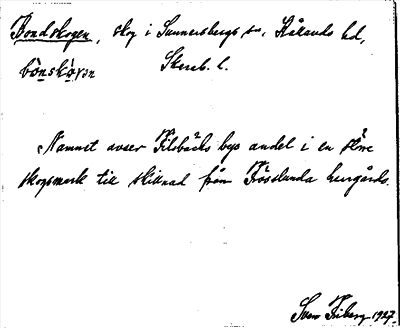 Bondskogen, skog i Sunnersbergs sn, Kållands hd,
bònskòγən Skarab. l.
Namnet avser Filsbäcks bys andel i en större
skogsmark till skillnad från Frösslunda herrgårds.
Sven Friberg 1927.